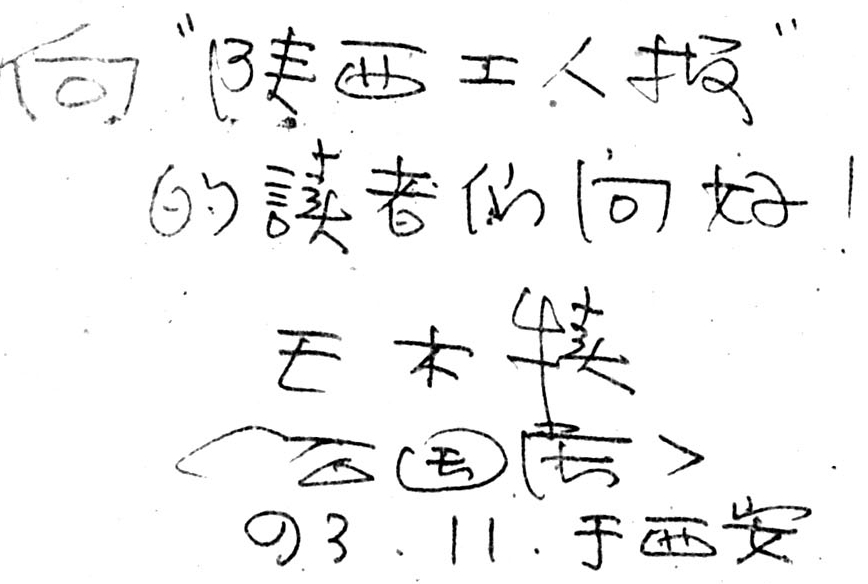 向"陕西工人报"
的读者们问好!
王木犊
<石国庆>
93.11.于西安